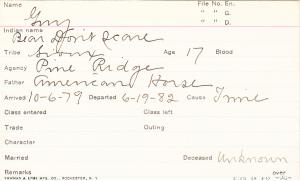 Name Guy File No. En.
" " G.
Indian name " " D.
Bear Don't Scare
Tribe Sioux Age 17 Blood
Agency Pine Ridge
Father American Horse
Arrived 10-6-79 Departed 6-19-82 Cause Time
Class entered Class left
Trade Outing
Character
Married Deceased Unknown
Remarks over